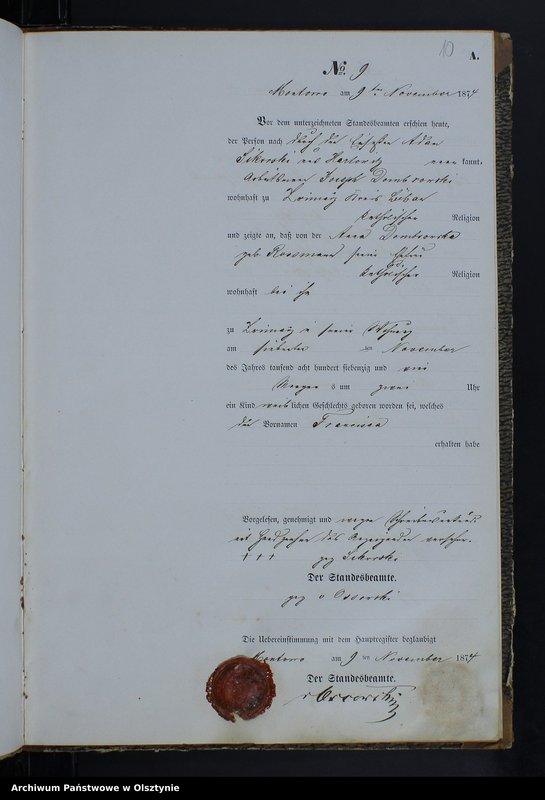 10
A.
No. 9
Montowo am 9ten November 1874
Vor dem unterzeichneten Standesbeamten erschien heute,
der Person nach durch den Adam
Sikorski aus kannt,
Joseph Dombrowski
wohnhaft zu Kreis Löbau
katholischer Religion
und zeigte an, daß von der Anna Dombrowska
geb. seiner Ehefrau
katholischer Religion
wohnhaft bei ihm
zu in seiner Wohnung
am siebenten ten November
des Jahres tausend acht hundert siebenzig und vier
Morgens um zwei Uhr
ein Kind weiblichen Geschlechts geboren worden sei, welches
den Vornamen Francisca
erhalten habe
Vorgelesen, genehmigt und wegen
mit Handzeichen des versehen.
+ + + gez Sikorski
Der Standesbeamte.
gez v Ossowski
Die Uebereinstimmung mit dem Hauptregister beglaubigt
Montowo am 9 ten November 1874
Der Standesbeamte.
v Ossowski
Archiwum Państwowe w Olsztynie